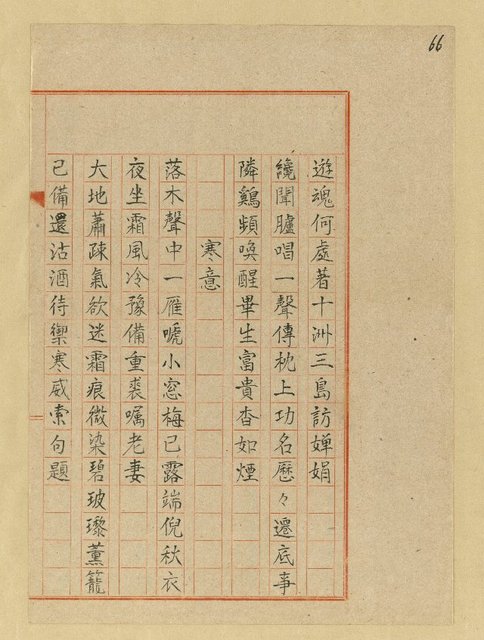 66
遊魂何處著十洲三島訪嬋娟
纔聞臚唱一聲傳枕上功名歷々遷底事
隣鷄頻喚醒畢生富貴杳如煙
寒意
落木聲中一雁嗁小窓梅已露端倪秋衣
夜坐霜風冷豫備重裘嘱老妻
大地蕭疎氣欲迷霜痕微染碧玻瓈薰籠
已備還沽酒待禦寒威索句題